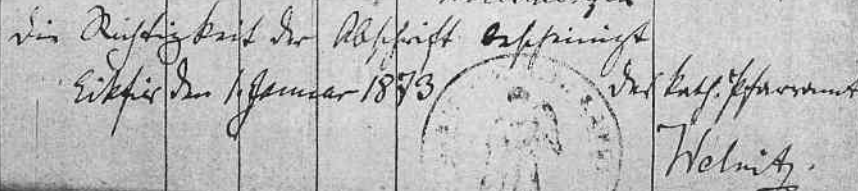 Die Richtigkeit der Abschrift bescheinigt
Eikfier den 1. Januar 1873
Das kath. Pfarramt
Welnitz.